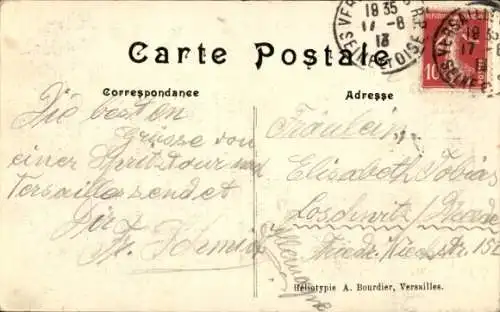 VERSAILLES R.P.
18 35
17 - 8
13
SEINE-ET-OISE
VERSAILLES
18 35
17 - 8
SEINE
10
Carte Postale
Correspondance
Adresse
Die besten
Grüsse von
einer Spritztour nach
Versailles sendet
Dir
Fr. Schmidt
Fräulein
Elisabeth Tobias
Loschwitz /
Allemagne
Héliotypie A. Bourdier, Versailles.